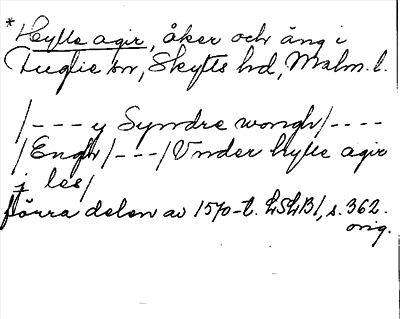 *Hylle agir, åker och äng i
Fuglie sn, Skytts hd, Malm. l.
/--- y Syndre wongh/----
/Engh/---/Vnder Hylle agir
j les/
förra delen av 1570-t. LSLB1, s. 362.
orig.